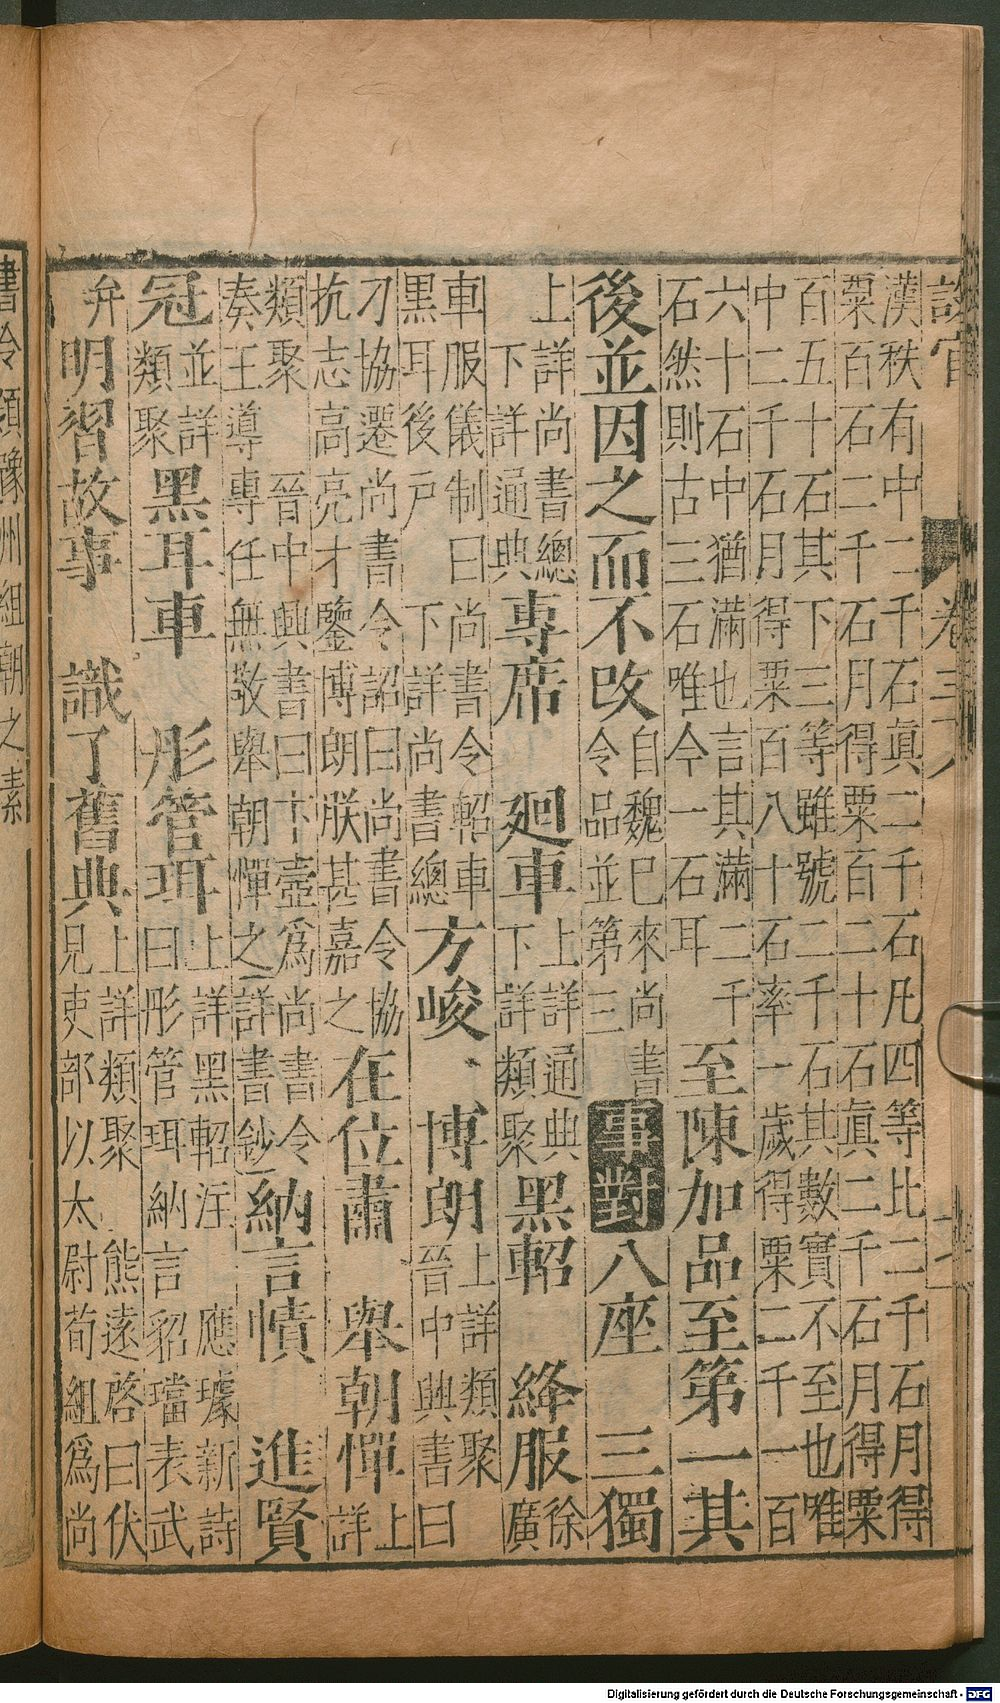 設官 卷三
漢秩有中二千石真二千石凡四等比二千石月得
粟百石二千石月得粟百二十石真二千石月得粟
百五十石其下三等雖號二千石其數實不至也唯
中二千石月得粟百八十石率一歲得粟二千一百
六十石中猶滿也言其滿二千
石然則古三石唯今一石耳
至陳加品至第一其
後並因之而不改
自魏已來尚書
令品並第三
事對 八座 三獨
上詳尚書總
下詳通典
專席 廻車
上詳通典
下詳類聚
黑軺 絳服
徐
廣
車服儀制曰尚書令軺車
黑耳後戶 下詳尚書總
方峻、博朗
上詳類聚
晉中興書曰
刁協遷尚書令詔曰尚書令協
抗志高亮才鑒博朗朕甚嘉之
在位肅 舉朝憚
上
詳
類聚 晉中興書曰卞壼爲尚書令
奏王導專任無敬舉朝憚之詳書鈔
納言幘 進賢
冠
並詳
類聚
黑耳車 彤管珥
上詳黑軺注 應璩新詩
曰彤管珥納言貂璫表武
弁
明習故事 識了舊典
上詳類聚 熊遠啓曰伏
見吏部以太尉荀組爲尚
書令領豫州組朝之素
Digitalisierung gefördert durch die Deutsche Forschungsgemeinschaft - DFG